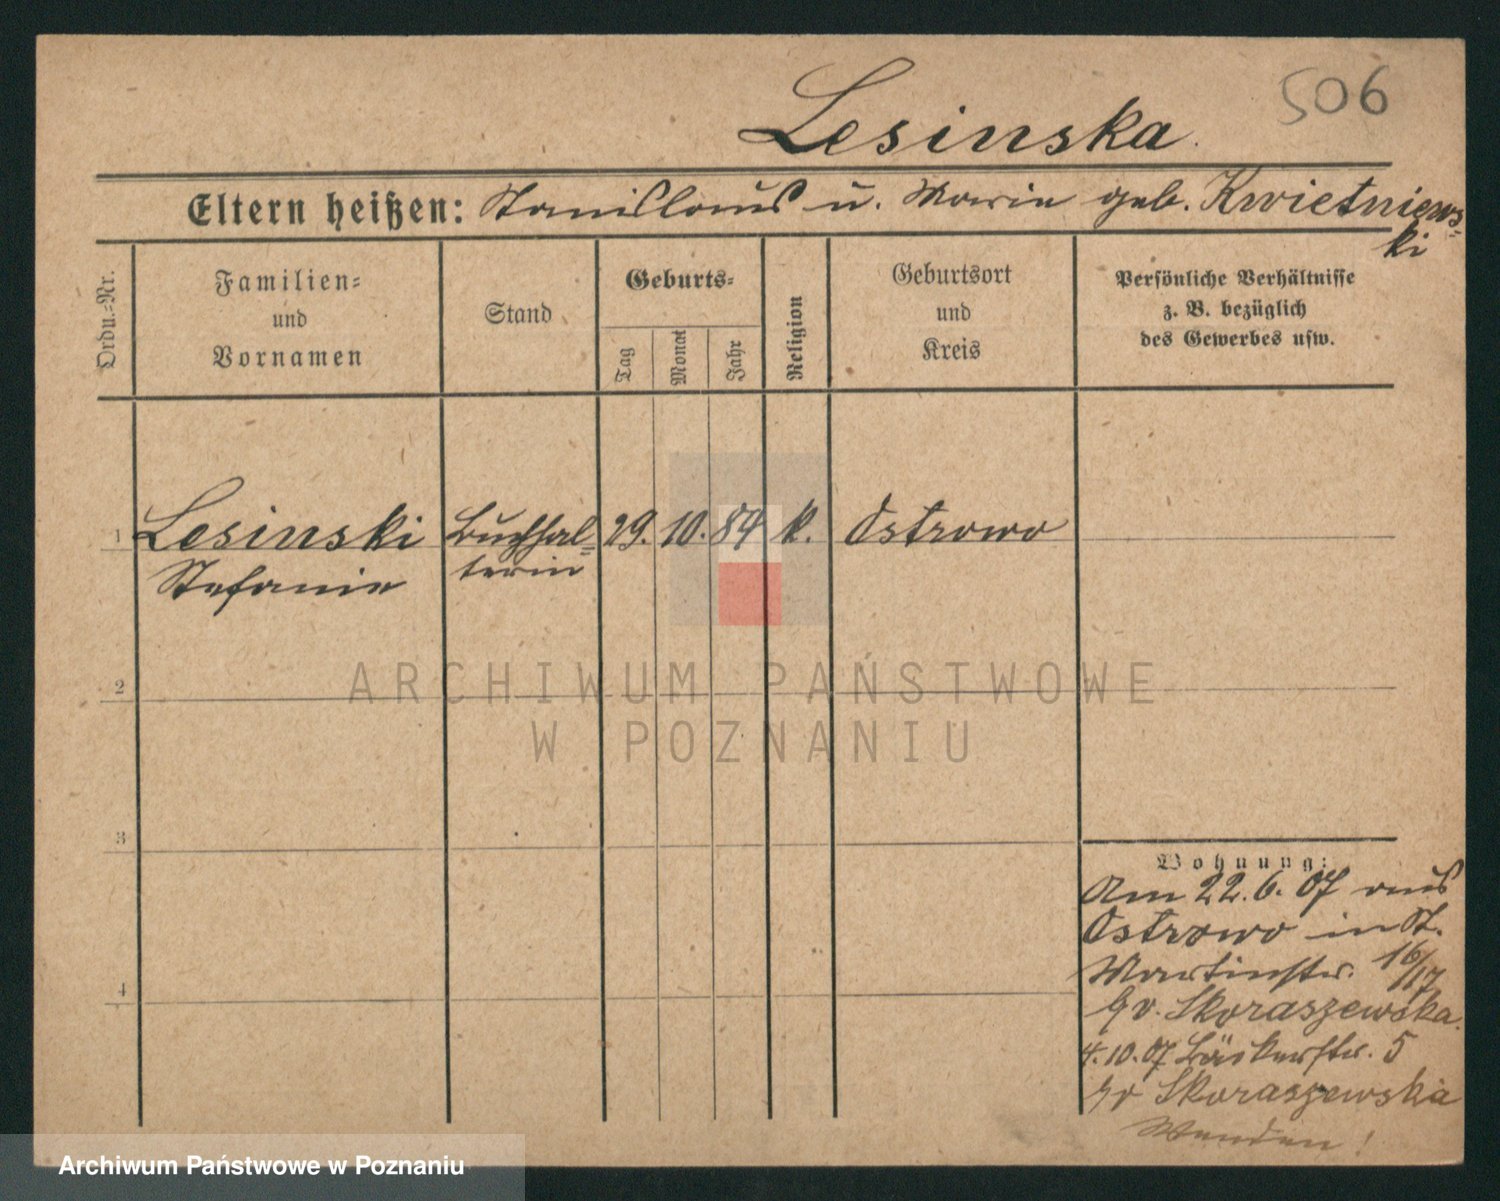 506
Lesinska.
Eltern heißen: Stanislaus u. Marie geb. Kwietniews=
ki
Ordn.=Nr.
Familien=
und
Vornamen
Stand
Geburts=
Tag
Monat
Jahr
Religion
Geburtsort
und
Kreis
Persönliche Verhältnisse
z. B. bezüglich
des Gewerbes usw.
1 Lesinski Buchhal= 29. 10. 84 k. Ostrowo
Stefanie terin
2
ARCHIWUM PAŃSTWOWE
W POZNANIU
3
Wohnung:
Am 22.6.07 aus
Ostrowo in St.
Martinstr. 16/17
4
Skoraszewska.
4.10.07 Bäckerstr. 5
Skoraszewska
Wenden!
Archiwum Państwowe w Poznaniu